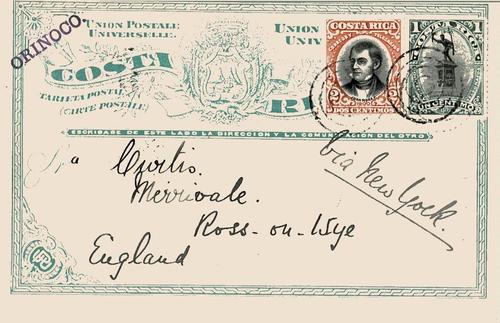 ORINOCO.
UNION POSTALE UNIVERSELLE.
UNION
UNIV
COSTA RICA
1
1
COSTA
RI
TARJETA POSTAL
(CARTE POSTALE)
2
2
DOS CENTIMOS
UN CENTIMO
ESCRIBASE DE ESTE LADO LA DIRECCION Y LA COMUNICACION DEL OTRO
Curtis.
Merrivale.
Ross-on-Wye
England
via New York.